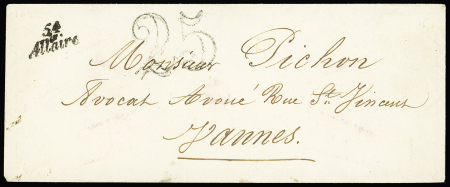 54
Allaire
25
Monsieur Pichon
Avocat Avoué Rue St. Vincent
Vannes.